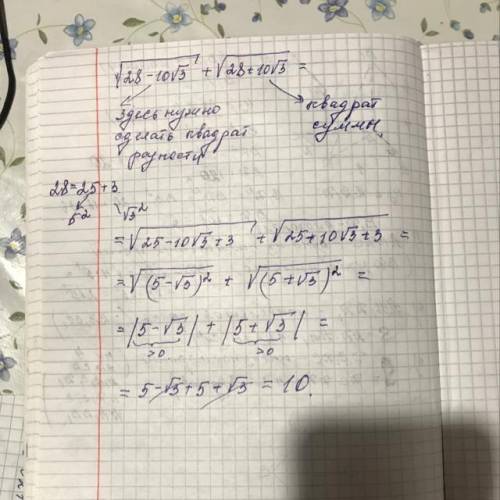 √28-10√3 + √28+10√3 =
здесь нужно
сделать квадрат
разности
квадрат
суммы
28=25+3
5² √3²
=√25-10√3+3 + √25+10√3+3 =
=√(5-√3)² + √(5+√3)² =
=|5-√3| + |5+√3| =
>0 >0
= 5-√3+5+√3 = 10.